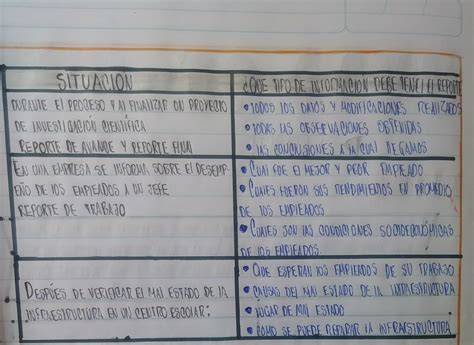 SITUACION
¿QUE TIPO DE INFORMACION DEBE TENER EL REPORTE
DURANTE EL PROCESO Y AL FINALIZAR UN PROYECTO
DE INVESTIGACIÓN CIENTÍFICA
REPORTE DE AVANCE Y REPORTE FINAL
• TODOS LOS DATOS Y MODIFICACIONES REALIZADOS
• TODAS LAS OBSERVACIONES OBTENIDAS
• LAS CONCLUSIONES A LA CUAL LLEGAMOS
EN UNA EMPRESA SE INFORMA SOBRE EL DESEMPE
ÑO DE LOS EMPLEADOS A UN JEFE
REPORTE DE TRABAJO
• CUAL FUE EL MEJOR Y PEOR EMPLEADO
• CUALES FUERON SUS RENDIMIENTOS EN PROMEDIO
DE LOS EMPLEADOS
• CUALES SON LAS CONDICIONES SOCIOECONÓMICAS
DE LOS EMPLEADOS
DESPUÉS DE VERIFICAR EL MAL ESTADO DE LA
INFRAESTRUCTURA EN UN CENTRO ESCOLAR:
• QUE ESPERAN LOS EMPLEADOS DE SU TRABAJO
• CAUSAS DEL MAL ESTADO DE LA INFRAESTRUCTURA
• LUGAR DE MAL ESTADO
• COMO SE PUEDE REPARAR LA INFRAESTRUCTURA